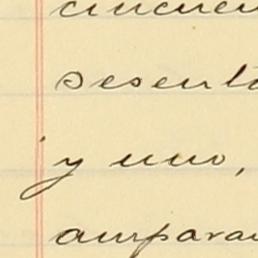 cincuen
sesenta
y uno,
amparan